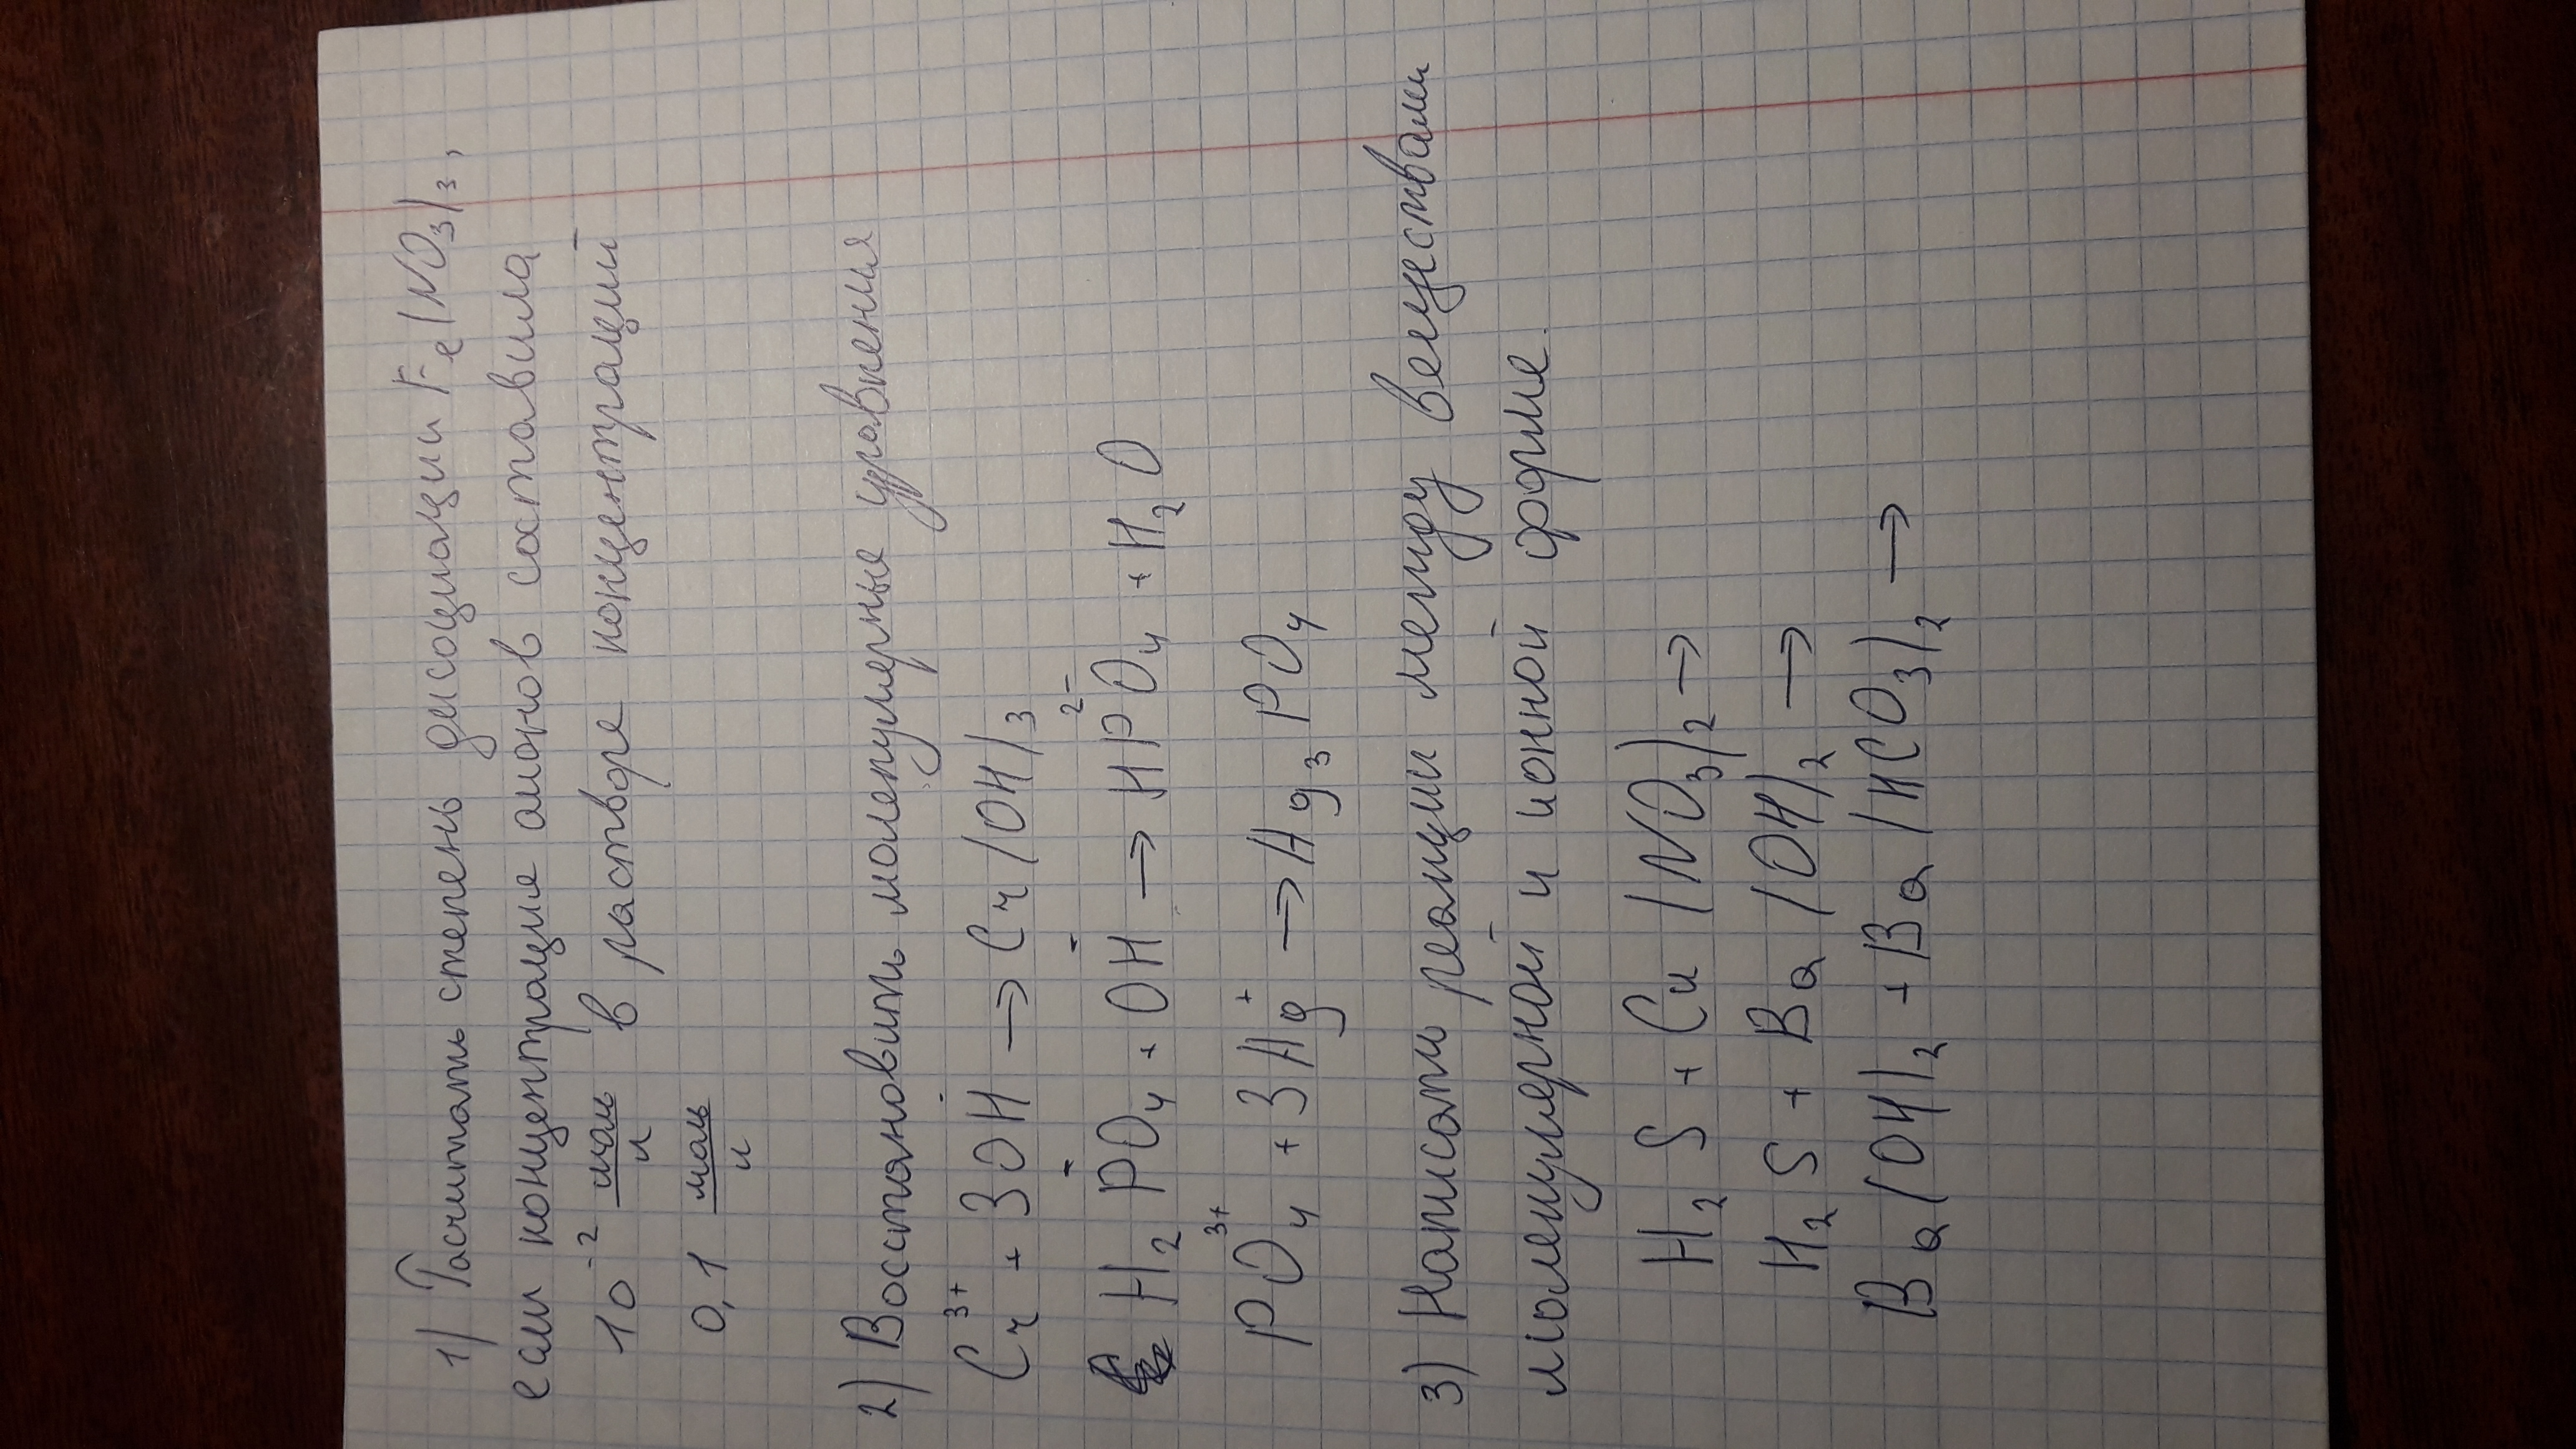 1) Расчитать степень дисоциации Fe(NO3)3,
если концентрация анионов составила
10⁻² моль/л в растворе концентраций
0,1 моль/л
2) Восстановить молекулярные уравнения
Cr³⁺ + 3OH⁻ → Cr(OH)3
H2PO4⁻ + OH⁻ → HPO4²⁻ + H2O
PO4³⁺ + 3Ag⁺ → Ag3PO4
3) Написать реакции между веществами
молекулярной и ионной форме.
H2S + Cu(NO3)2 →
H2S + Ba(OH)2 →
Ba(OH)2 + Ba(HCO3)2 →